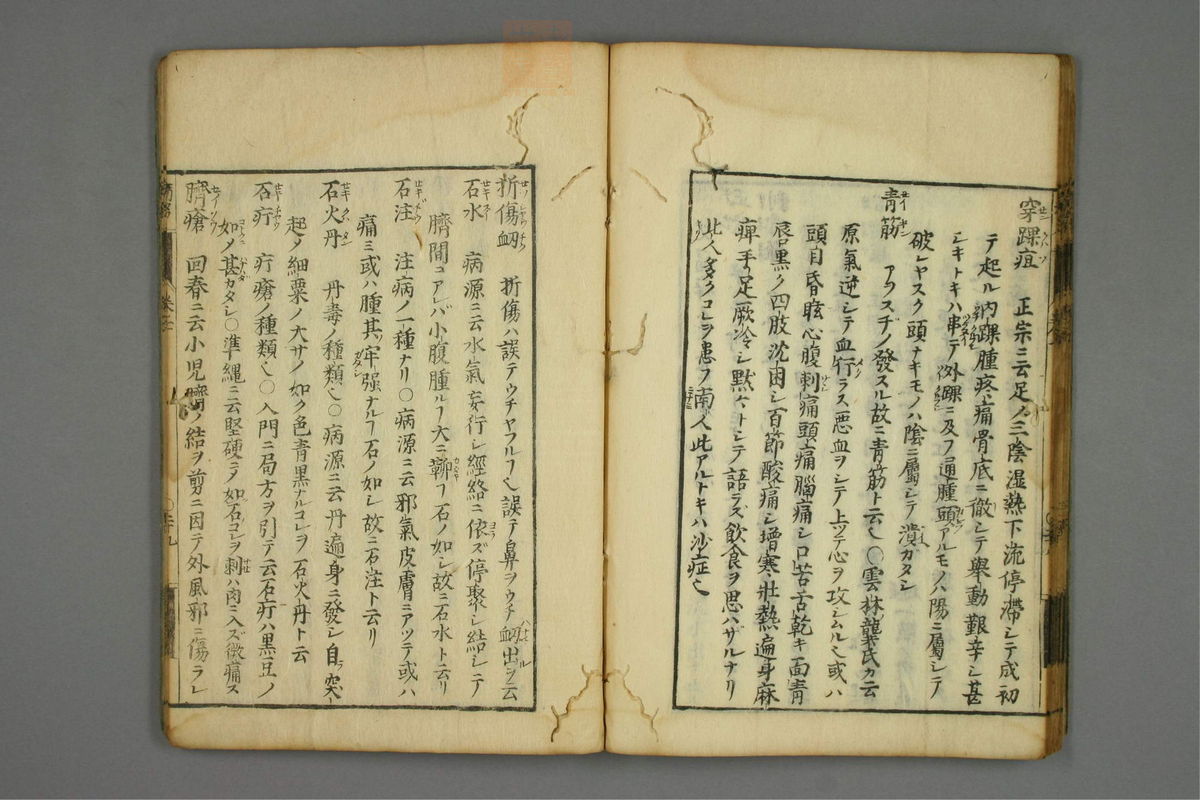 穿踝疽 正宗ニ云足ノ三陰湿熱下流停滞シテ成初
テ起ル内踝腫疼痛骨底ニ徹シテ舉動艱辛シ甚
シキトキハ串テ外踝ニ及フ通腫頭アルモノハ陽ニ屬シテ
破レヤスク頭ナキモノハ陰ニ屬シテ潰ガタシ
青筋 アヲスヂノ發スル故ニ青筋ト云也〇雲林龔氏カ云
原氣逆シテ血行ラス悪血ヲシテ上ツテ心ヲ攻シムル也或ハ
頭目昏眩心腹刺痛頭痛腦痛シ口苦舌乾キ面青
唇黒ク四肢沈困シ百節酸痛シ増寒壮熱遍身麻
痺手足厥冷シ黙々トシテ語ラズ飲食ヲ思ハザルナリ
北人多クコレヲ患フ南人此アルトキハ沙症也
折傷衂 折傷ハ誤テウチヤフル也誤テ鼻ヲウチ衂出ヲ云
石水 病源ニ云水氣妄行シ經絡ニ依ズ停聚シ結シテ
臍間ニアレバ小腹腫ルヿ大ニ鞕ヿ石ノ如シ故ニ石水ト云リ
石注 注病ノ一種ナリ〇病源ニ云邪氣皮膚ニアツテ或ハ
痛ミ或ハ腫其牢强ナルヿ石ノ如シ故ニ石注ト云リ
石火丹 丹毒ノ種類也〇病源ニ云丹遍身ニ發シ自突
起ノ細粟ノ大サノ如ク色青黒ナルコレヲ石火丹ト云
石疔 疔瘡ノ種類也〇入門ニ局方ヲ引テ云石疔ハ黒豆ノ
如ノ甚カタシ〇準縄ニ云堅硬ニノ如石コレヲ刺ハ肉ニ入ズ微痛ス
臍瘡 回春ニ云小児臍ノ結ヲ剪ニ因テ外風邪ニ傷ラレ